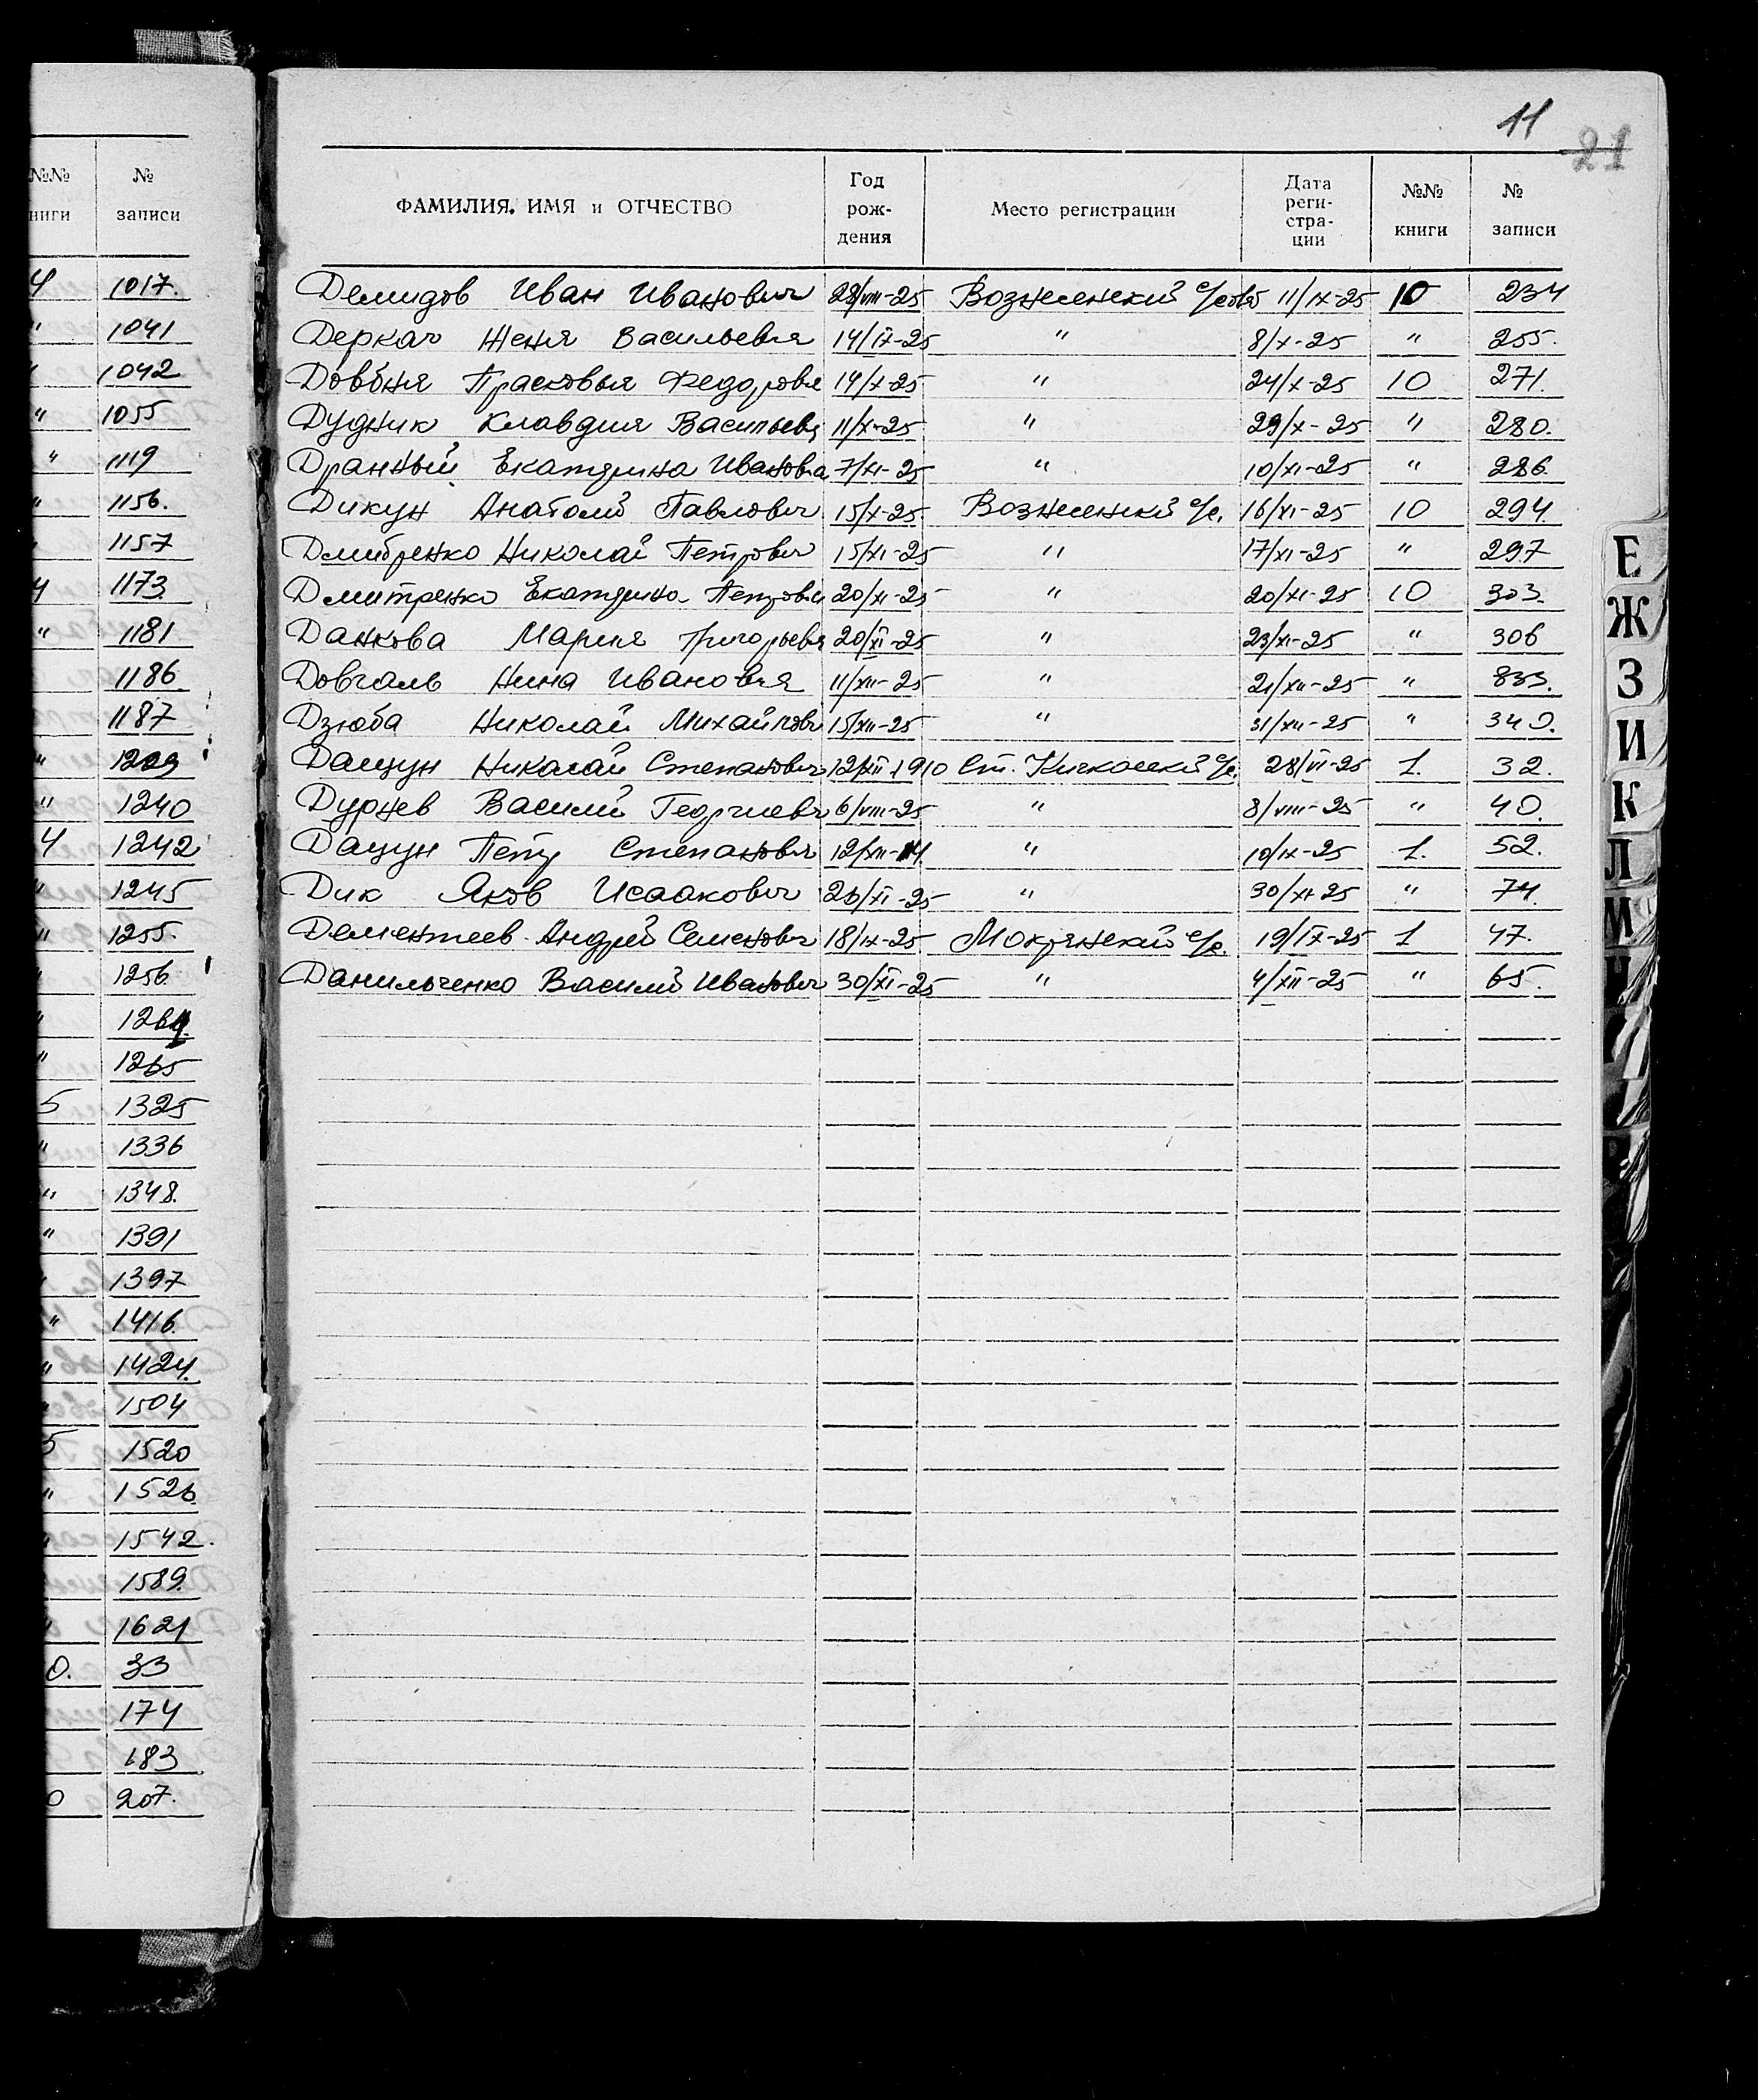 11
21
№№ книги
№ записи
4 1017.
" 1041
" 1042
" 1055
" 1119
" 1156.
" 1157
4 1173.
" 1181
" 1186.
1187
" 1209
" 1240
4 1242
" 1245
" 1255.
" 1256.
" 1264.
" 1265
5 1325
" 1336
" 1348.
" 1391
" 1397
" 1416.
" 1424.
" 1504
5 1520
" 1526
" 1542.
1589.
" 1621
0. 33
174
183
0 207.
ФАМИЛИЯ, ИМЯ и ОТЧЕСТВО
Год рож-дения
Место регистрации
Дата реги-стра-ции
№№ книги
№ записи
Демидов Иван Иванович 28/VIII-25 Вознесенский с/совет 11/IX-25 10 234
Деркач Женя Васильевна 14/IX-25 " 8/X-25 " 255.
Довбня Прасковья Федоровна 14/X-25 " 24/X-25 10 271.
Дудник Клавдия Васильевна 11/X-25 " 29/X-25 " 280.
Дранный Екатерина Ивановна 7/XI-25 " 10/XI-25 " 286.
Дикун Анатолий Павлович 15/X-25 Вознесенский с/с. 16/XI-25 10 294.
Дмитренко Николай Петрович 15/XI-25 " 17/XI-25 " 297
Дмитренко Екатерина Петровна 20/XI-25 " 20/XI-25 10 303.
Данкова Мария Григорьевна 20/XI-25 " 23/XI-25 " 306
Довгаль Нина Ивановна 11/XII-25 " 21/XII-25 " 333.
Дзюба Николай Михайлович 15/XII-25 " 31/XII-25 " 340.
Дацун Николай Степанович 12/XII 1910 Ст. Кичкасский с/с. 28/VI-25 1. 32.
Дурнев Василий Георгиевич 6/VIII-25 " 8/VIII-25 " 40.
Дацун Петр Степанович 12/XII-14. " 10/IX-25 1. 52.
Дик Яков Исаакович 26/XI-25 " 30/XI-25 " 74.
Дементеев Андрей Семенович 18/IX-25 Мокрянский с/с. 19/IX-25 1 47.
Данильченко Василий Иванович 30/XI-25 " 4/XII-25 " 65.
Е
Ж
З
И
К
Л
М
Н